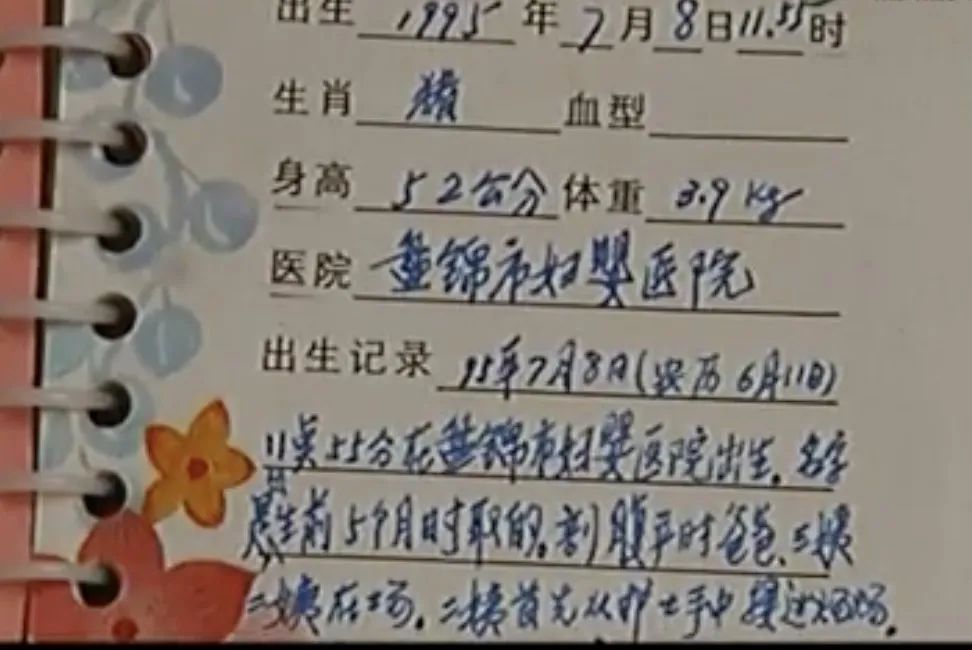 出生 1995 年 7 月 8 日 11.55 时
生肖 猪 血型
身高 52公分 体重 3.9 kg
医院 盘锦市妇婴医院
出生记录 95年7月8日(农历6月11日)
11点55分在盘锦市妇婴医院出生。名字
是出生前5个月时取的。剖腹产时爸爸、三姨
二姨在场。二姨首先从护士手中接过